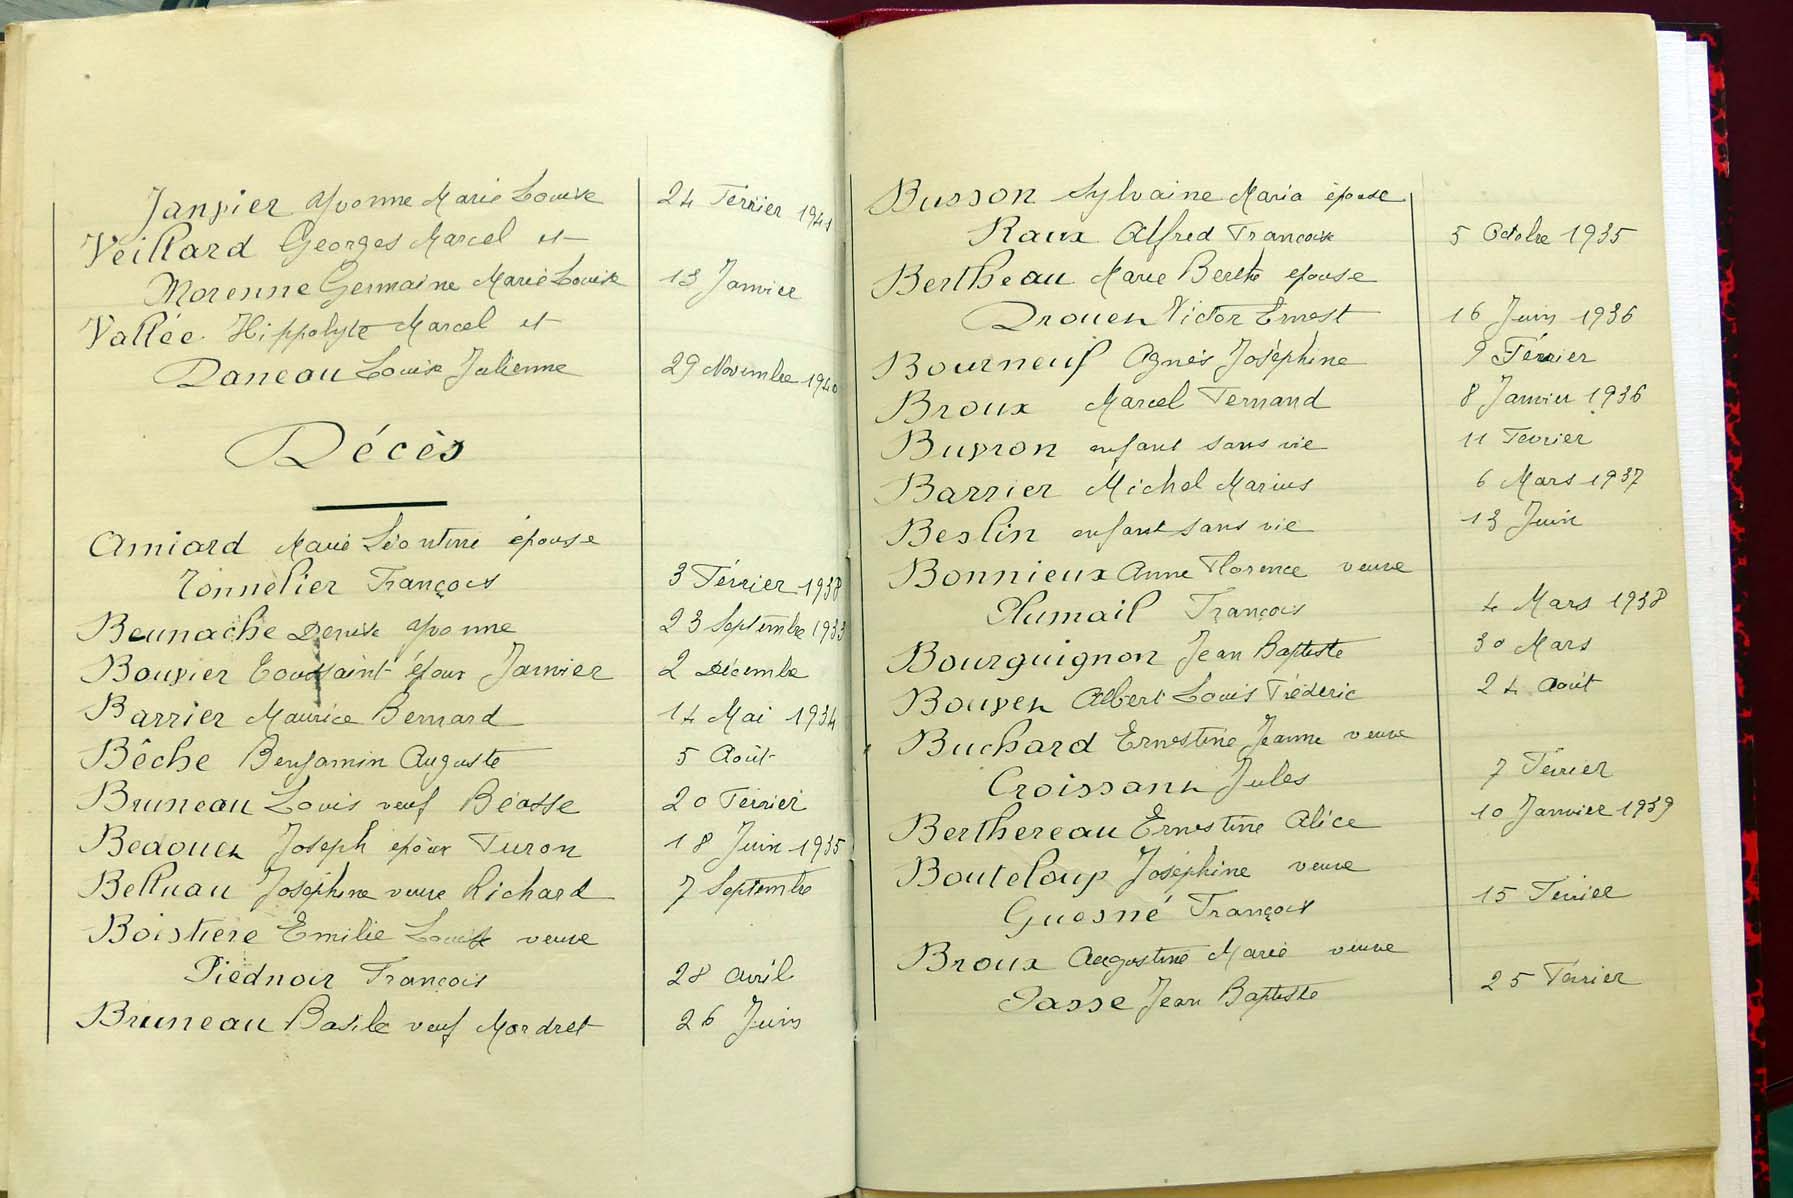 Janvier Yvonne Marie Louise 24 Février 1941
Veillard Georges Marcel et
Morenne Germaine Marie Louise 13 Janvier
Vallée Hippolyte Marcel et
Daneau Louise Julienne 29 Novembre 1940
Décès
Amiard Marie Léontine épouse
Tonnelier François 3 Février 1938
Beunache Denise Yvonne 23 Septembre 1933
Bouvier Toussaint époux Janvier 2 Décembre
Barrier Maurice Bernard 14 Mai 1934
Bêche Benjamin Auguste 5 Août
Bruneau Louis veuf Béasse 20 Février
Bedouet Joseph époux Turon 18 Juin 1935
Belluau Joséphine veuve Richard 7 Septembre
Boistiere Emilie Louise veuve
Piednoir François 28 Avril
Bruneau Basile veuf Mordret 26 Juin
Busson Sylvaine Maria épouse
Raux Alfred François 5 Octobre 1935
Bertheau Marie Berthe épouse
Drouet Victor Ernest 16 Juin 1936
Bourneuf Agnès Joséphine 9 Février
Broux Marcel Fernand 8 Janvier 1936
Buvron enfant sans vie 11 Février
Barrier Michel Marius 6 Mars 1937
Beslin enfant sans vie 13 Juin
Bonnieux Anne Florence veuve
Plumail François 4 Mars 1938
Bourguignon Jean Baptiste 30 Mars
Bouvet Albert Louis Fréderic 24 Août
Buchard Ernestine Jeanne veuve
Croissant Jules 7 Février
Berthereau Ernestine Alice 10 Janvier 1939
Bouteloup Joséphine veuve
Guesné François 15 Février
Broux Augustine Marie veuve
Passe Jean Baptiste 25 Février